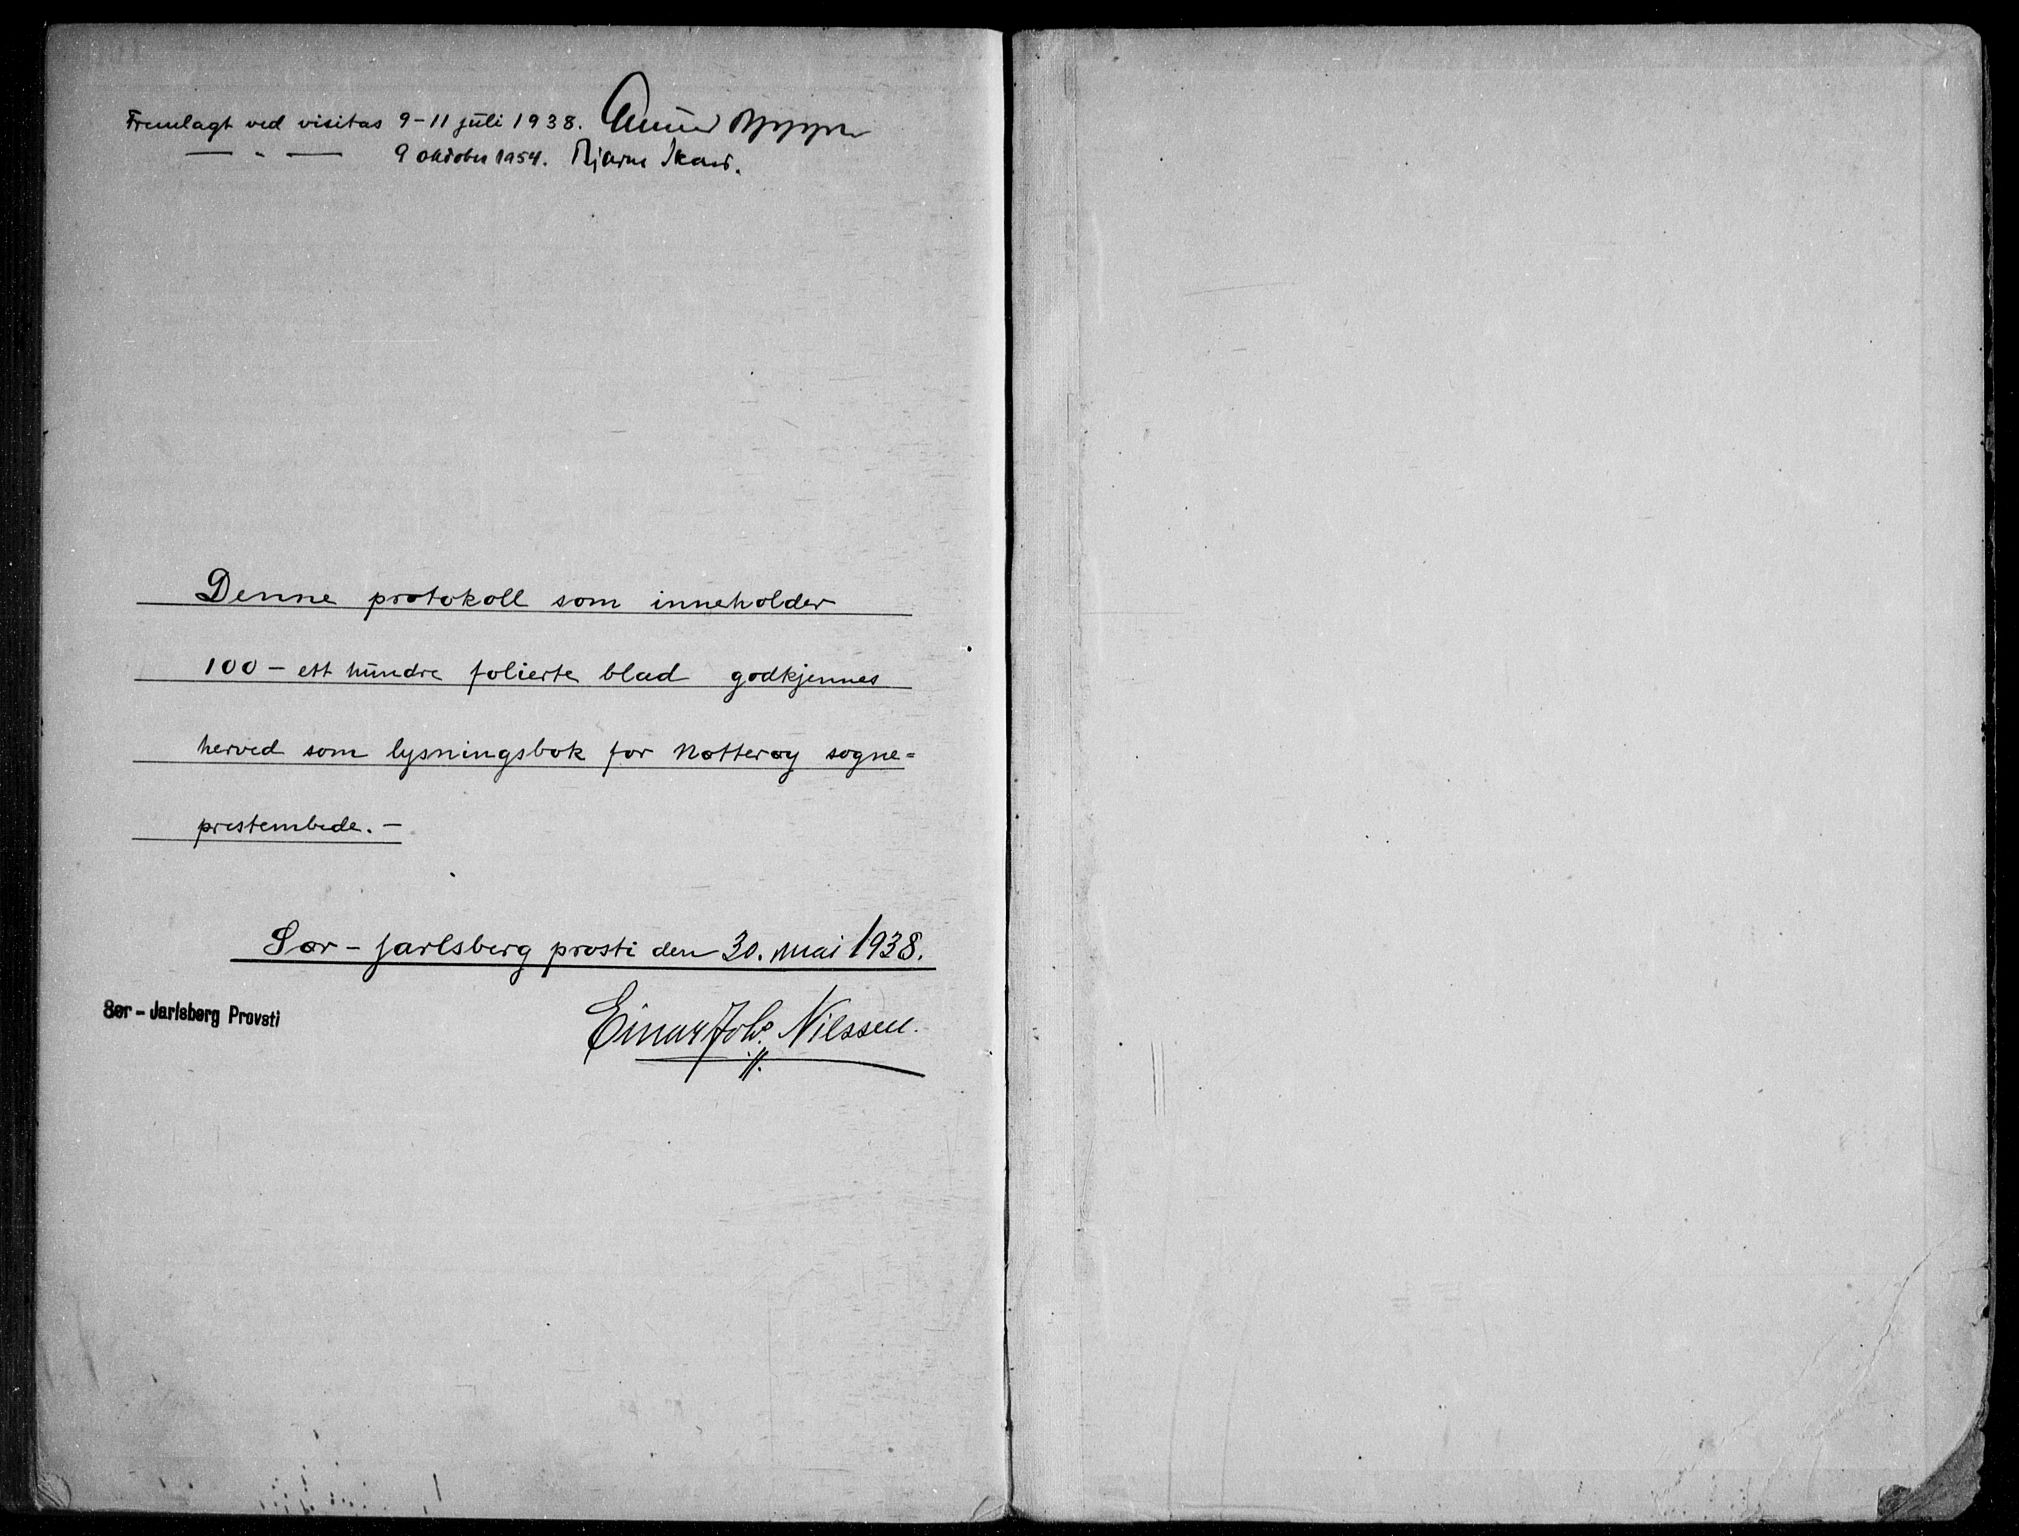 Fremlagt ved visitas 9-11 juli 1938.
— " — 9 oktober 1954. Bjarne Skard.
Denne protokoll som inneholder
100 - ett hundre folierte blad godkjennes
herved som lysningsbok for Nøtterøy sogne=
prestembede. -
Sør - Jarlsberg prosti den 30. mai 1938.
Sør - Jarlsberg Provsti
Einar Joh. Nilssen.